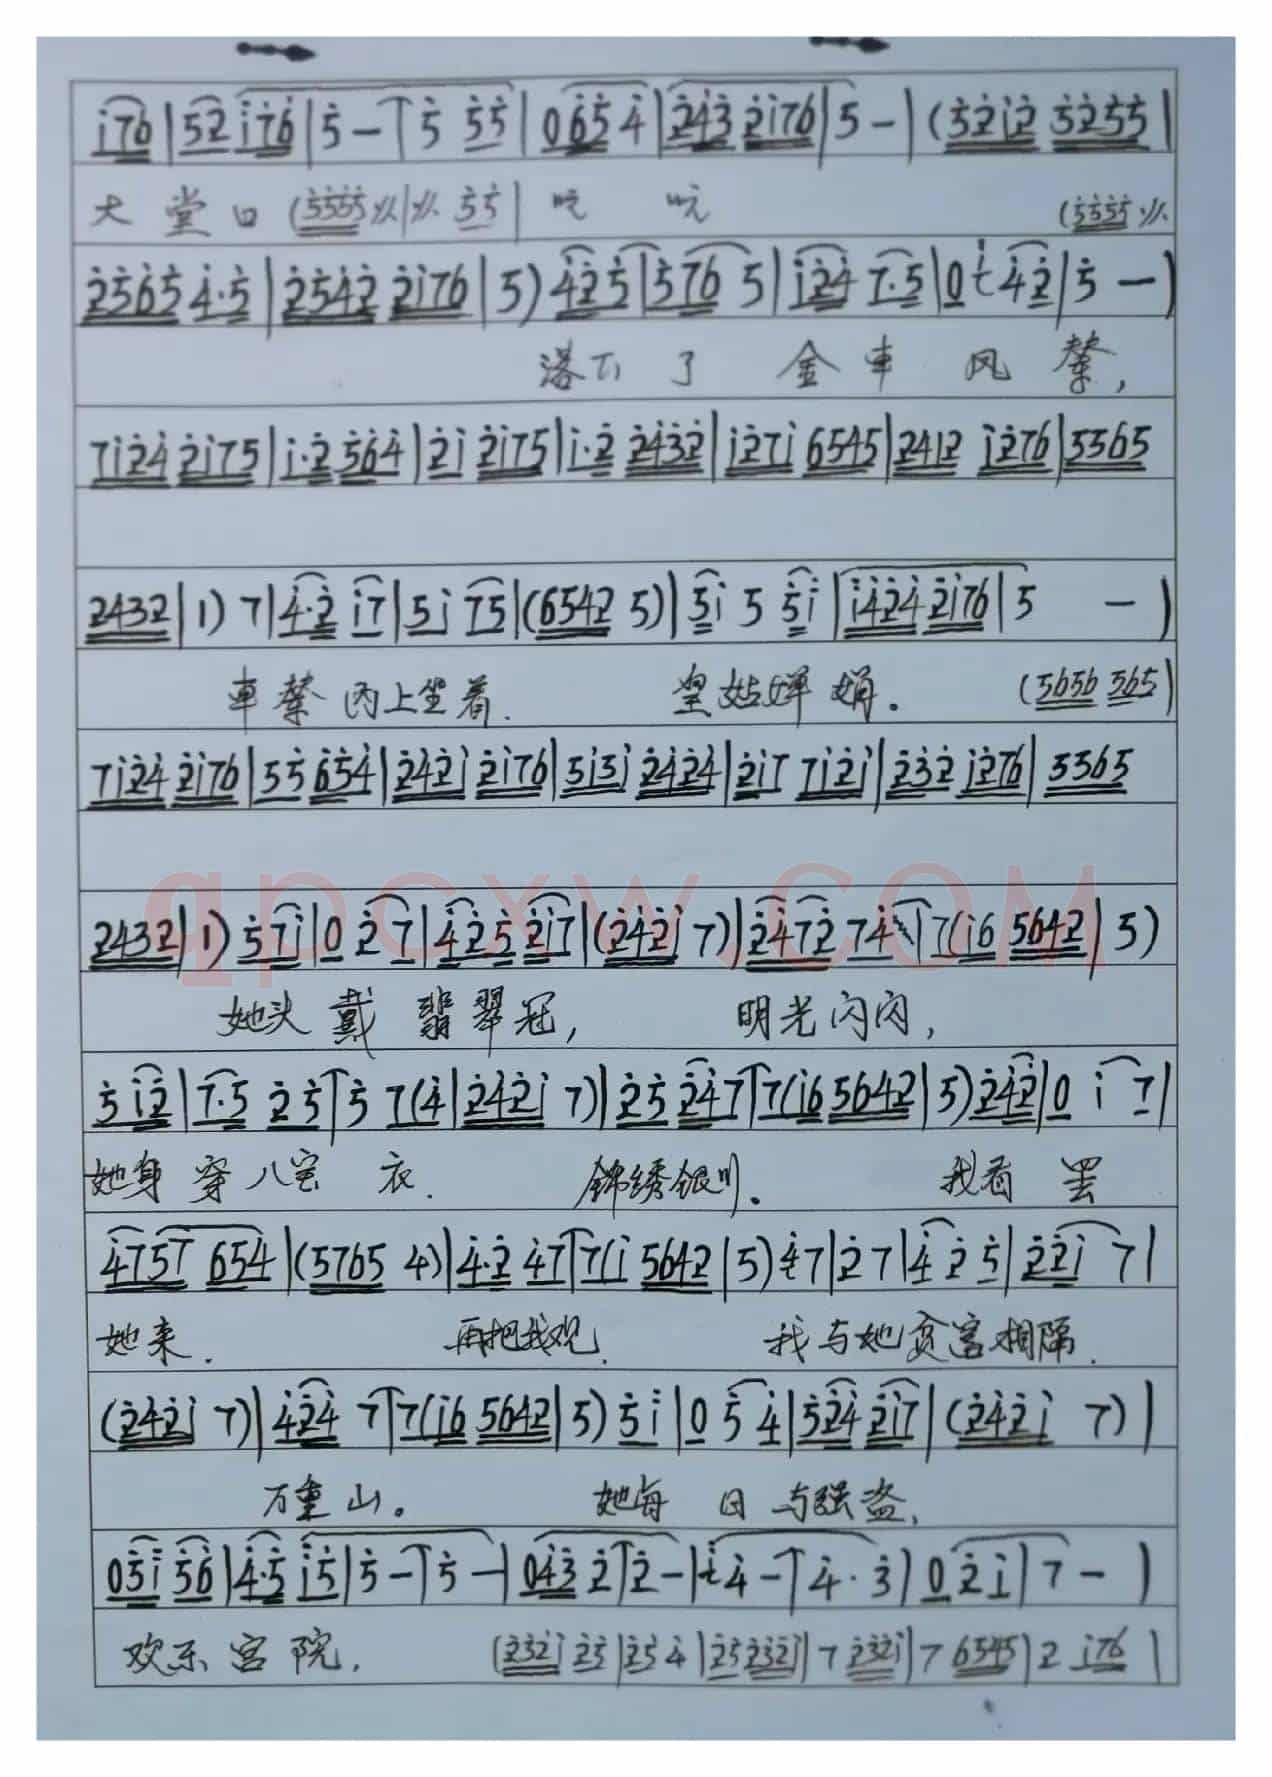 i76|52 i76|5-|5 55|0 65 4|243 2i76|5-|(52i2 5255|
大堂口(5555 从|从 55| 吭 吭 (5555 从
2565 4·5|2542 2i76|5) 425|576 5|i24 7·5|0 i 42|5 -)
落下了 金車 风辇,
7i24 2i75|i·2 564|2i 2i75|i·2 2432|i27i 6545|2412 i276|5565
2432|1) 7|4·2 i7|5i 75|(6542 5)|5i 5 5i|i424 2i76|5 -)
車辇内上坐着. 皇姑婵娟。 (5656 565)
7i24 2i76|55 654|242i 2i76|5i5i 2424|2i7 7i2i|232 i276|5565
2432|1) 57i|0 2 7|425 2i7|(242i 7)|2472 74|7(i6 5642|5)
她头戴翡翠冠, 明光闪闪,
5 i2|7·5 25|5 7(4|242i 7)|25 247|7(i6 5642|5) 242|0 i 7|
她身穿八宝衣. 錦绣银川。 我看罢
4757 654|(5765 4)|4·2 47|7(i 5642|5) 47|27|4 2 5|22i 7|
她来. 再把我观. 我与她贫富相隔.
(242i 7)|424 7|7(i6 5642|5) 5i|0 5 4|524 2i7|(242i 7)|
万重山。 她每日与强盗,
05i 56|4·5 i5|5-|5-|043 2|2-|4-|4·3|0 2i|7-|
欢乐宫院. (232i 25|25 4|25 232i|7 232i|7 6545|2 i76|
qpcxw.COM